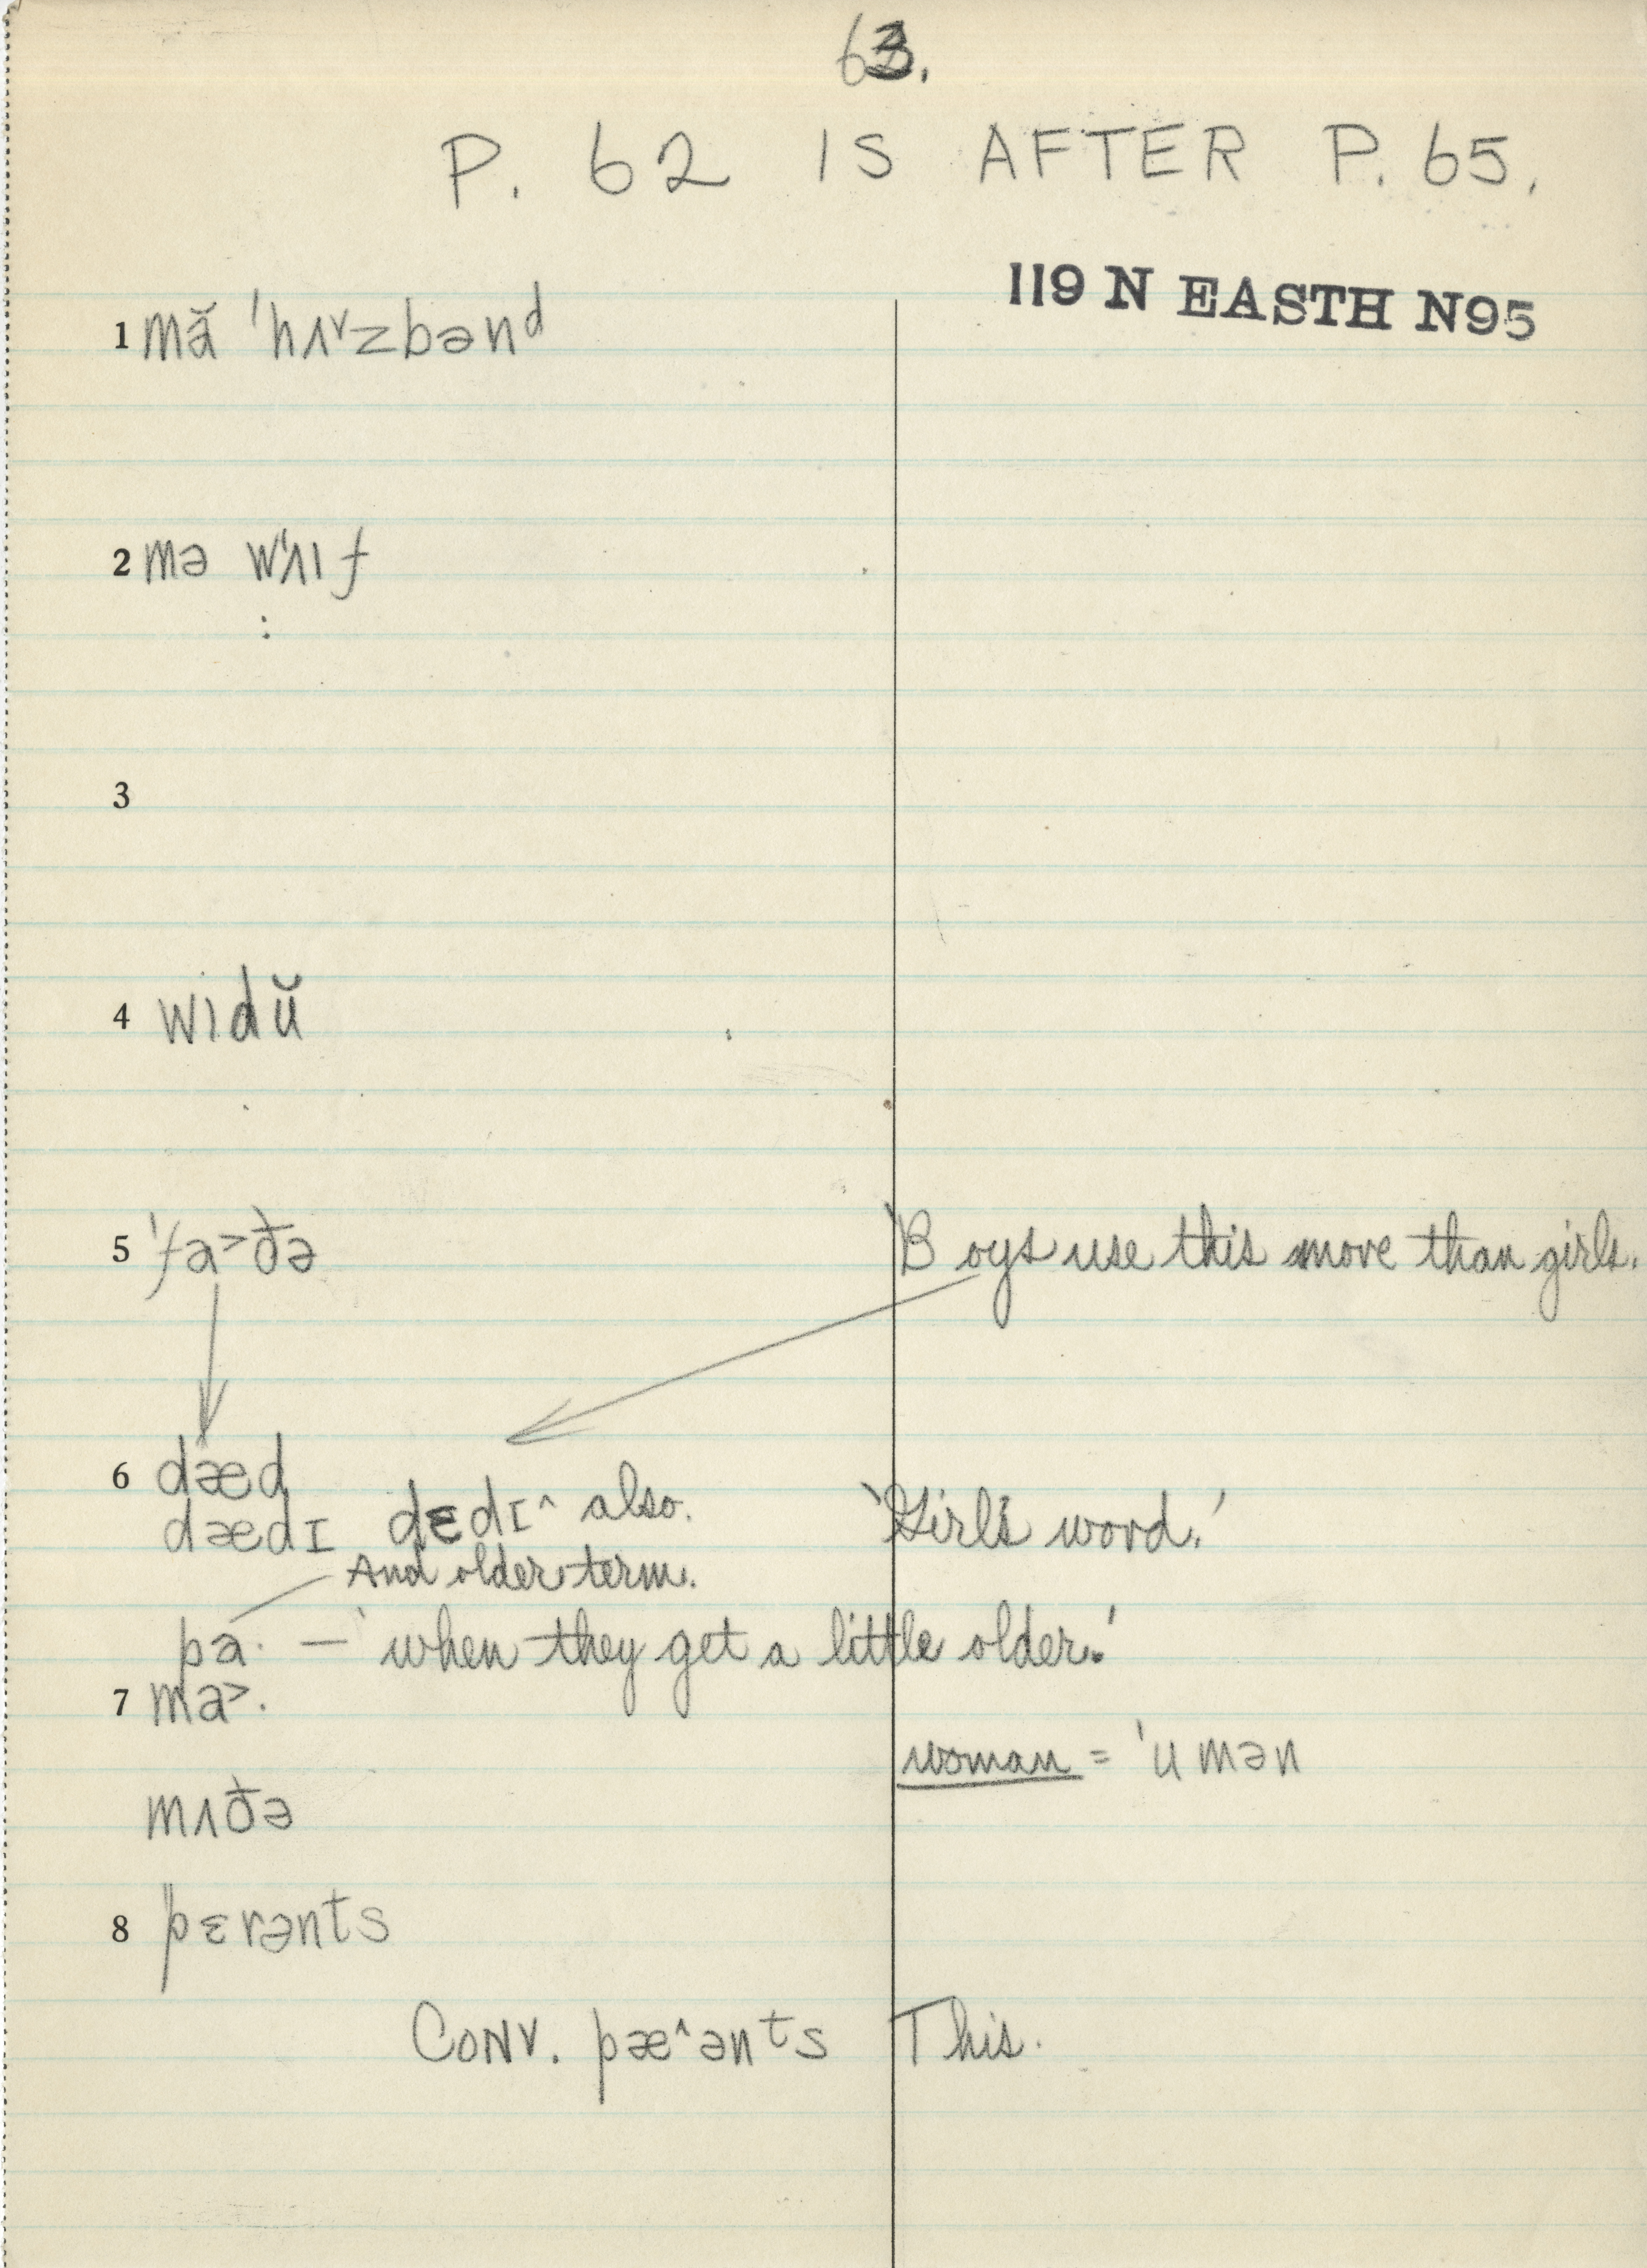 63.
P. 62 IS AFTER P. 65.
119 N EASTH N95
1 mə̆ ˈhʌ˅zbənᵈ
2 mə wˈʌıf
3
4 wıdŭ
5 ˈfa˃ðə 'Boys use this more than girls.
6 dæd
dædɪ dɛdɪ^ also. 'Girl's word.'
And older term.
pa· — 'when they get a little older.'
7 ma˃·
woman = ˈumən
mʌðə
8 pɛrənts
CONV. pæ^ənᵗs This.